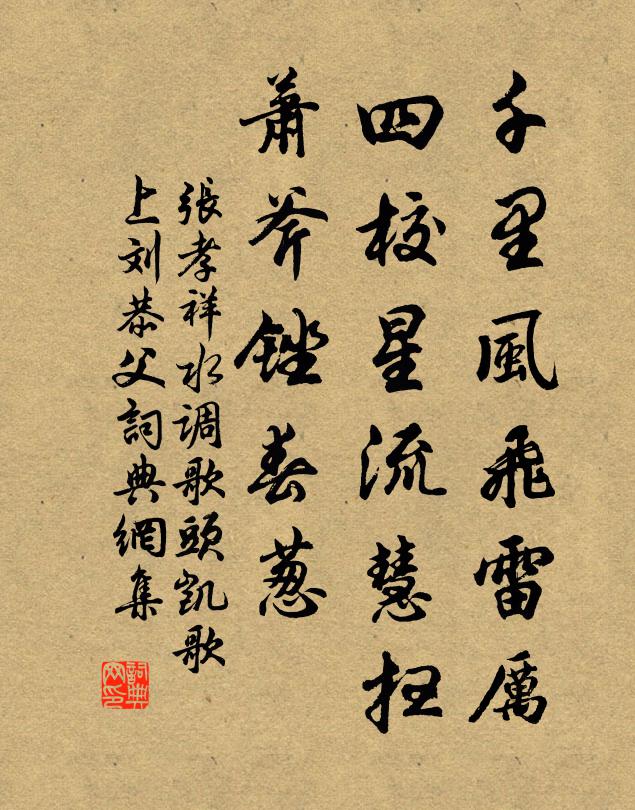 千里風飛雷厲
四校星流慧扫
蕭斧銼春葱
張孝祥水调歌頭凱歌
上刘恭父詞典網集
詞典网印